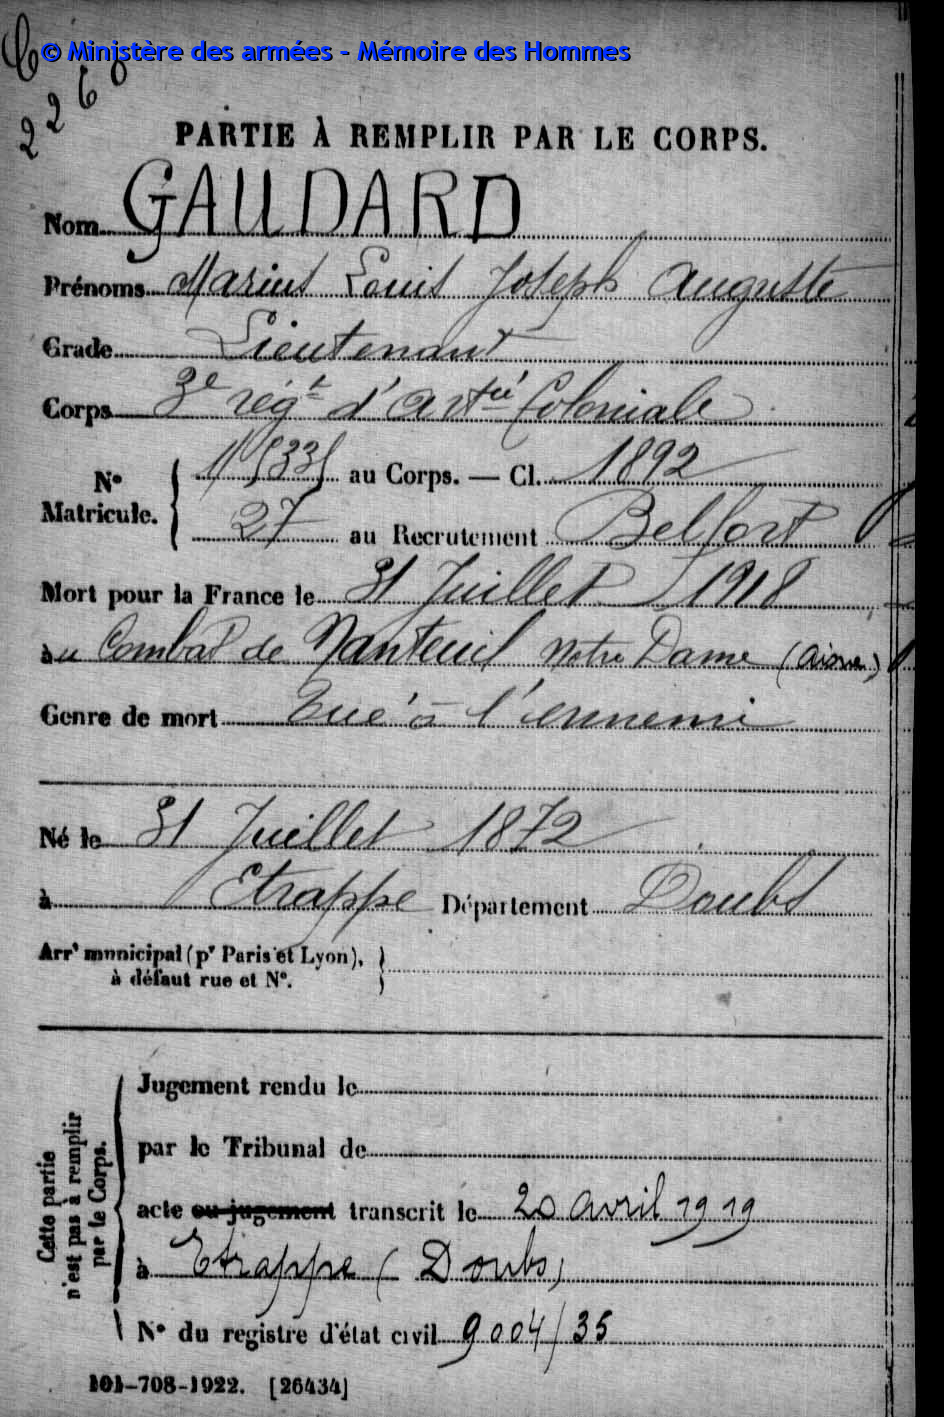 © Ministère des armées - Mémoire des Hommes
2260
PARTIE À REMPLIR PAR LE CORPS.
Nom GAUDARD
Prénoms Marius Louis Joseph Auguste
Grade Lieutenant
Corps 3e régt d'Artie Coloniale
N° Matricule. { au Corps. — Cl. 1892
27 au Recrutement Belfort
Mort pour la France le 31 Juillet 1918
au Combat de Nanteuil Notre Dame (Aisne)
Genre de mort Tué à l'ennemi
Né le 31 Juillet 1872
à Etrappe Département Doubs
Arrt municipal (pr Paris et Lyon),
à défaut rue et N°.
Cette partie n'est pas à remplir par le Corps.
Jugement rendu le
par le Tribunal de
acte ou jugement transcrit le 20 avril 1919
à Etrappe (Doubs)
N° du registre d'état civil 9004/35
101-708-1922. [26434]